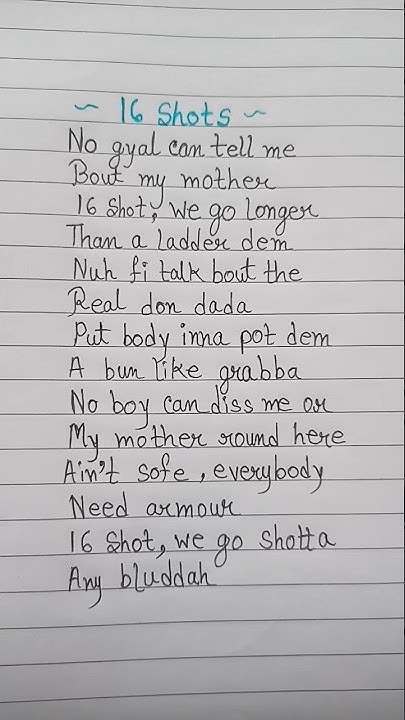 ~ 16 Shots ~
No gyal can tell me
Bout my mother
16 Shot, we go longer
Than a ladder dem
Nuh fi talk bout the
Real don dada
Put body inna pot dem
A bun like grabba
No boy can diss me or
My mother round here
Ain't safe, everybody
Need armour
16 Shot, we go shotta
Any bluddah